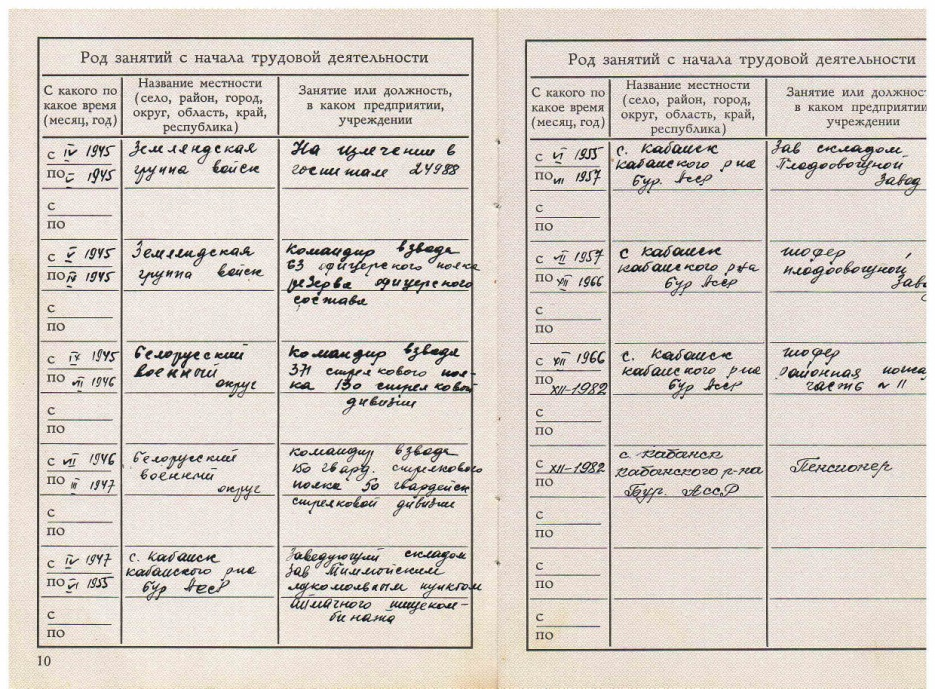 Род занятий с начала трудовой деятельности
С какого по
какое время
(месяц, год)
Название местности
(село, район, город,
округ, область, край,
республика)
Занятие или должность,
в каком предприятии,
учреждении
с IV 1945
по V 1945
Земляндская
группа войск
На излечении в
госпитале 24988
с
по
с V 1945
по IX 1945
Земляндская
группа войск
командир взвода
63 офицерского полка
резерва офицерского
состава
с
по
с IX 1945
по VII 1946
Белорусский
военный
округ
командир взвода
371 стрелкового пол-
ка 130 стрелковой
дивизии
с
по
с VII 1946
по III 1947
Белорусский
военный
округ
командир взвода
150 гвард. стрелкового
полка 50 гвардейск
стрелковой дивизии
с
по
с IV 1947
по VI 1955
с. Кабанск
кабанского р-на
Бур АССР
Заведующий складом
Зав
мукомольным пунктом
аймачного пищеком-
бината
с
по
10
Род занятий с начала трудовой деятельности
С какого по
какое время
(месяц, год)
Название местности
(село, район, город,
округ, область, край,
республика)
Занятие или должность,
в каком предприятии
учреждении
с VI 1955
по VII 1957
с. кабанск
кабанского р-на
Бур. АССР
Зав складом
Плодоовощной
Завод
с
по
с VII 1957
по XII 1966
с кабанск
кабанского р-на
Бур АССР
шофер
плодоовощной
Заво
с
по
с XII 1966
по
XII-1982
с. кабанск
кабанского р-на
Бур АССР
шофер
районная пожа
часть N 11
с
по
с XII-1982
по
с кабанск
кабанского р-на
Бур. АССР
Пенсионер
с
по
с
по
с
по